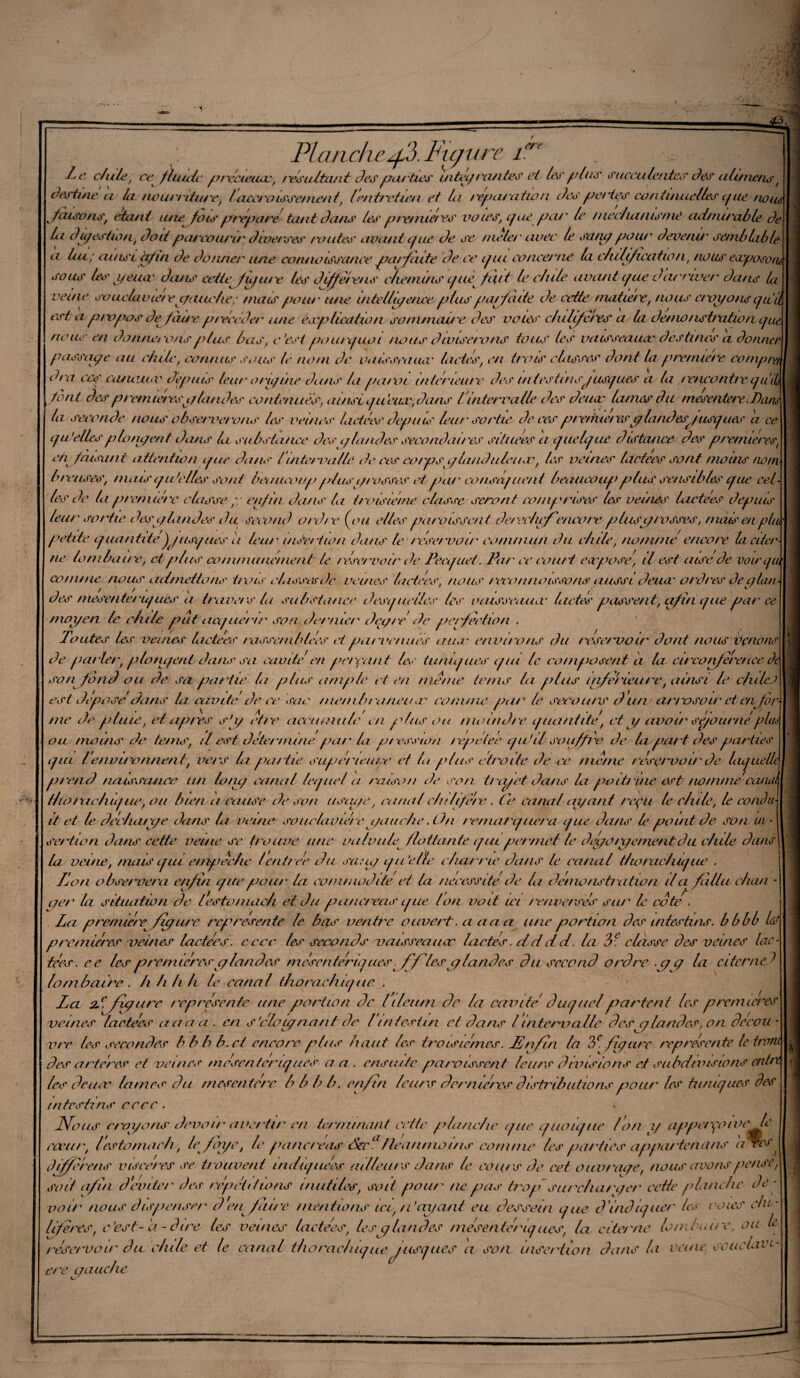 43.
Planche 43. Figure 1.ere
Le chile, ce fluide précieux, résultant des parties intégrantes et les plus succulentes des alimens,
destiné a la nourriture, l'accroissement, l'entretien et la réparation des pertes continuelles que nous
faisons, étant une fois préparé tant dans les premieres voies, que par le mechanisme admirable de
la digestion, doit parcourir diverses routes avant que de se mêler avec le sang pour devenir semblable
a lui; ainsi afin de donner une connoissance parfaite de ce qui concerne la chilification, nous exposons
sous les yeux dans cette figure les différens chemins que fait le chile avant que d'arriver dans la
veine souclaviére gauche; mais pour une intelligence plus parfaite de cette matiére, nous croyons qu'il
est a propos de faire précéder une explication sommaire des voies chiliféres a la démonstration que
nous en donnerons plus bas, c'est pourquoi nous diviserons tous les vaisseaux destinés a donner
passage au chile, connus sous le nom de vaisseaux lactés, en trois classes dont la premiére compren
dra ces canaux depuis leur origine dans la paroi intérieure des intestins jusques a la rencontre qu'ils
font des premiéres glandes contenuës, ainsi qu'eux, dans l'intervalle des deux lames du mésentere. Dans
la seconde nous observerons les veines lactées depuis leur sortie de ces premiéres glandes jusques a ce
qu'elles plongent dans la substance des glandes secondaires situées a quelque distance des premieres,
en faisant attention que dans l'intervalle de ces corps glanduleux, les veines lactées sont moins nom
breuses, mais qu'elles sont beaucoup plus grosses et par conséquent beaucoup plus sensibles que cel-
les de la premiére classe; enfin dans la troisiéme classe seront comprises les veines lactées depuis
leur sortie des glandes du second ordre (ou elles paroissent derechef encore plus grosses, mais en plus
petite quantité) jusques a leur insertion dans le réservoir commun du chile, nommé encore la citer-
ne lombaire, et plus communément le réservoir de Pecquet. Par ce court exposé, il est aisé de voir que
comme nous admettons trois classes de veines lactées, nous reconnoissons aussi deux ordres de glan-
des mésentériques a travers la substance desquelles les vaisseaux lactés passent, afin que par ce
moyen le chile pût acquérir son dernier degré de perfection.
Toutes les veines lactées rassemblées et parvenuës aux environs du réservoir dont nous venons
de parler, plongent dans sa cavité en perçant les tuniques qui le composent a la circonférence de
son fond ou de sa partie la plus ample et en même tems la plus inférieure, ainsi le chile
est déposé dans la cavité de ce sac membraneux comme par le secours d'un arrosoir et en for-
me de pluie, et apres s'y etre accumulé en plus ou moindre quantité, et y avoir séjourné plus
ou moins de tems, il est déterminé par la pression répétée qu'il souffre de la part des parties
qui l'environnent, vers la partie supérieure et la plus étroite de ce même réservoir de laquelle
prend naissance un long canal lequel a raison de son trajet dans la poitrine est nommé canal
thorachique, ou bien a cause de son usage, canal chilifére. Ce canal ayant reçu le chile, le condu-
it et le décharge dans la veine souclaviére gauche. On remarquera que dans le point de son in-
sertion dans cette veine se trouve une valvule flottante qui permet le dégorgement du chile dans
la veine, mais qui empêche l'entrée du sang qu'elle charrie dans le canal thorachique.
L'on observera enfin que pour la commodité et la nécessité de la démonstration il a fallu chan-
ger la situation de l'estomach et du pancreas que l'on voit ici renversés sur le coté.
La premiére figure représente le bas ventre ouvert. a a a a une portion des intestins. b b b b les
premiéres veines lactées. c c c c les seconds vaisseaux lactés. d d d d. la 3.e classe des veines lac-
tées. e e les premiéres glandes mésentériques. f f les glandes du second ordre. g g la citerne
lombaire. h h h h le canal thorachique.
La 2.e figure représente une portion de l'ileum de la cavité duquel partent les premiéres
veines lactées a a a a. en s'éloignant de l'intestin et dans l'intervalle des glandes, on décou-
vre les secondes b b b b. et encore plus haut les troisiémes. Enfin la 3.e figure représente le tronc
des artéres et veines mésentériques a a. ensuite paroissent leurs divisions et subdivisions entre
les deux lames du mesentére b b b b, enfin leurs derniéres distributions pour les tuniques des
intestins c c c c.
Nous croyons devoir avertir en terminant cette planche que quoique l'on y apperçoive le
cœur, l'estomach, le foye, le pancréas &c.a Néanmoins comme les parties appartenans a ces
différens viscéres se trouvent indiquées ailleurs dans le cours de cet ouvrage, nous avons pensé,
soit afin d'éviter des répétitions inutiles, soit pour ne pas trop surcharger cette planche de-
voir nous dispenser d'en faire mentions ici, n'ayant eu dessein que d'indiquer les voies chi-
liféres, c'est-a-dire les veines lactées, les glandes mésentériques, la citerne lombaire, ou le
réservoir du chile et le canal thorachique jusques a son insertion dans la veine souclavi-
ere gauche